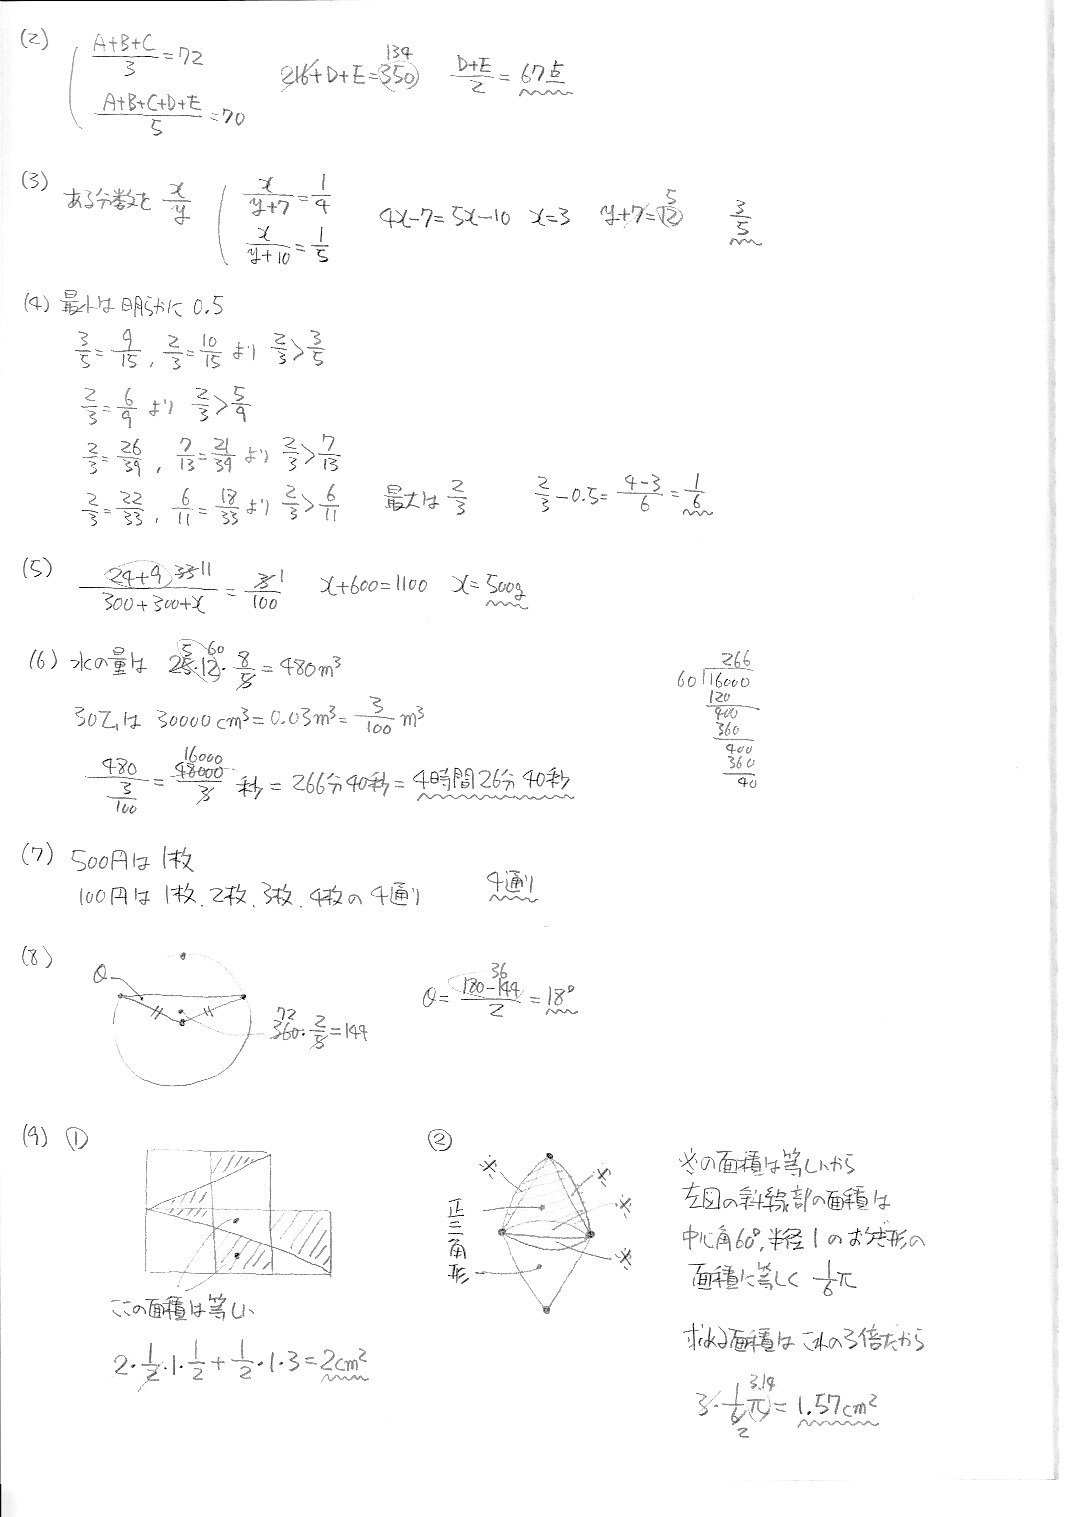 (2) A+B+C/3=72 216+D+E=350 134 D+E/2=67点
A+B+C+D+E/5=70
(3) ある分数を x/y x/y+7=1/4 4x-7=5x-10 x=3 y+7=12 5 3/5
x/y+10=1/5
(4) 最小は明らかに 0.5
3/5=9/15, 2/3=10/15 より 2/3>3/5
2/3=6/9 より 2/3>5/9
2/3=26/39, 7/13=21/39 より 2/3>7/13
2/3=22/33, 6/11=18/33 より 2/3>6/11 最大は 2/3 2/3-0.5=4-3/6=1/6
(5) 24+9 33 11/300+300+x=3 1/100 x+600=1100 x=500g
(6) 水の量は 25 5・12 60・8/5=480m³
30Lは 30000cm³=0.03m³=3/100m³
480/3/100=16000 48000/3秒=266分40秒=4時間26分40秒
266
60)16000
120
400
360
400
360
40
(7) 500円は1枚
100円は1枚、2枚、3枚、4枚の4通り 4通り
(8) θ θ=180-144 36/2=18°
72
360・2/5=144
(9) ①
この面積は等しい
2・1/2・1・1/2+1/2・1・3=2cm²
②
※
※
※
※
正三角形
※の面積は等しいから
左図の斜線部の面積は
中心角60°,半径1のおうぎ形の
面積に等しく 1/6π
求める面積はこれの3倍だから
3・1/6 2 π 3.14=1.57cm²